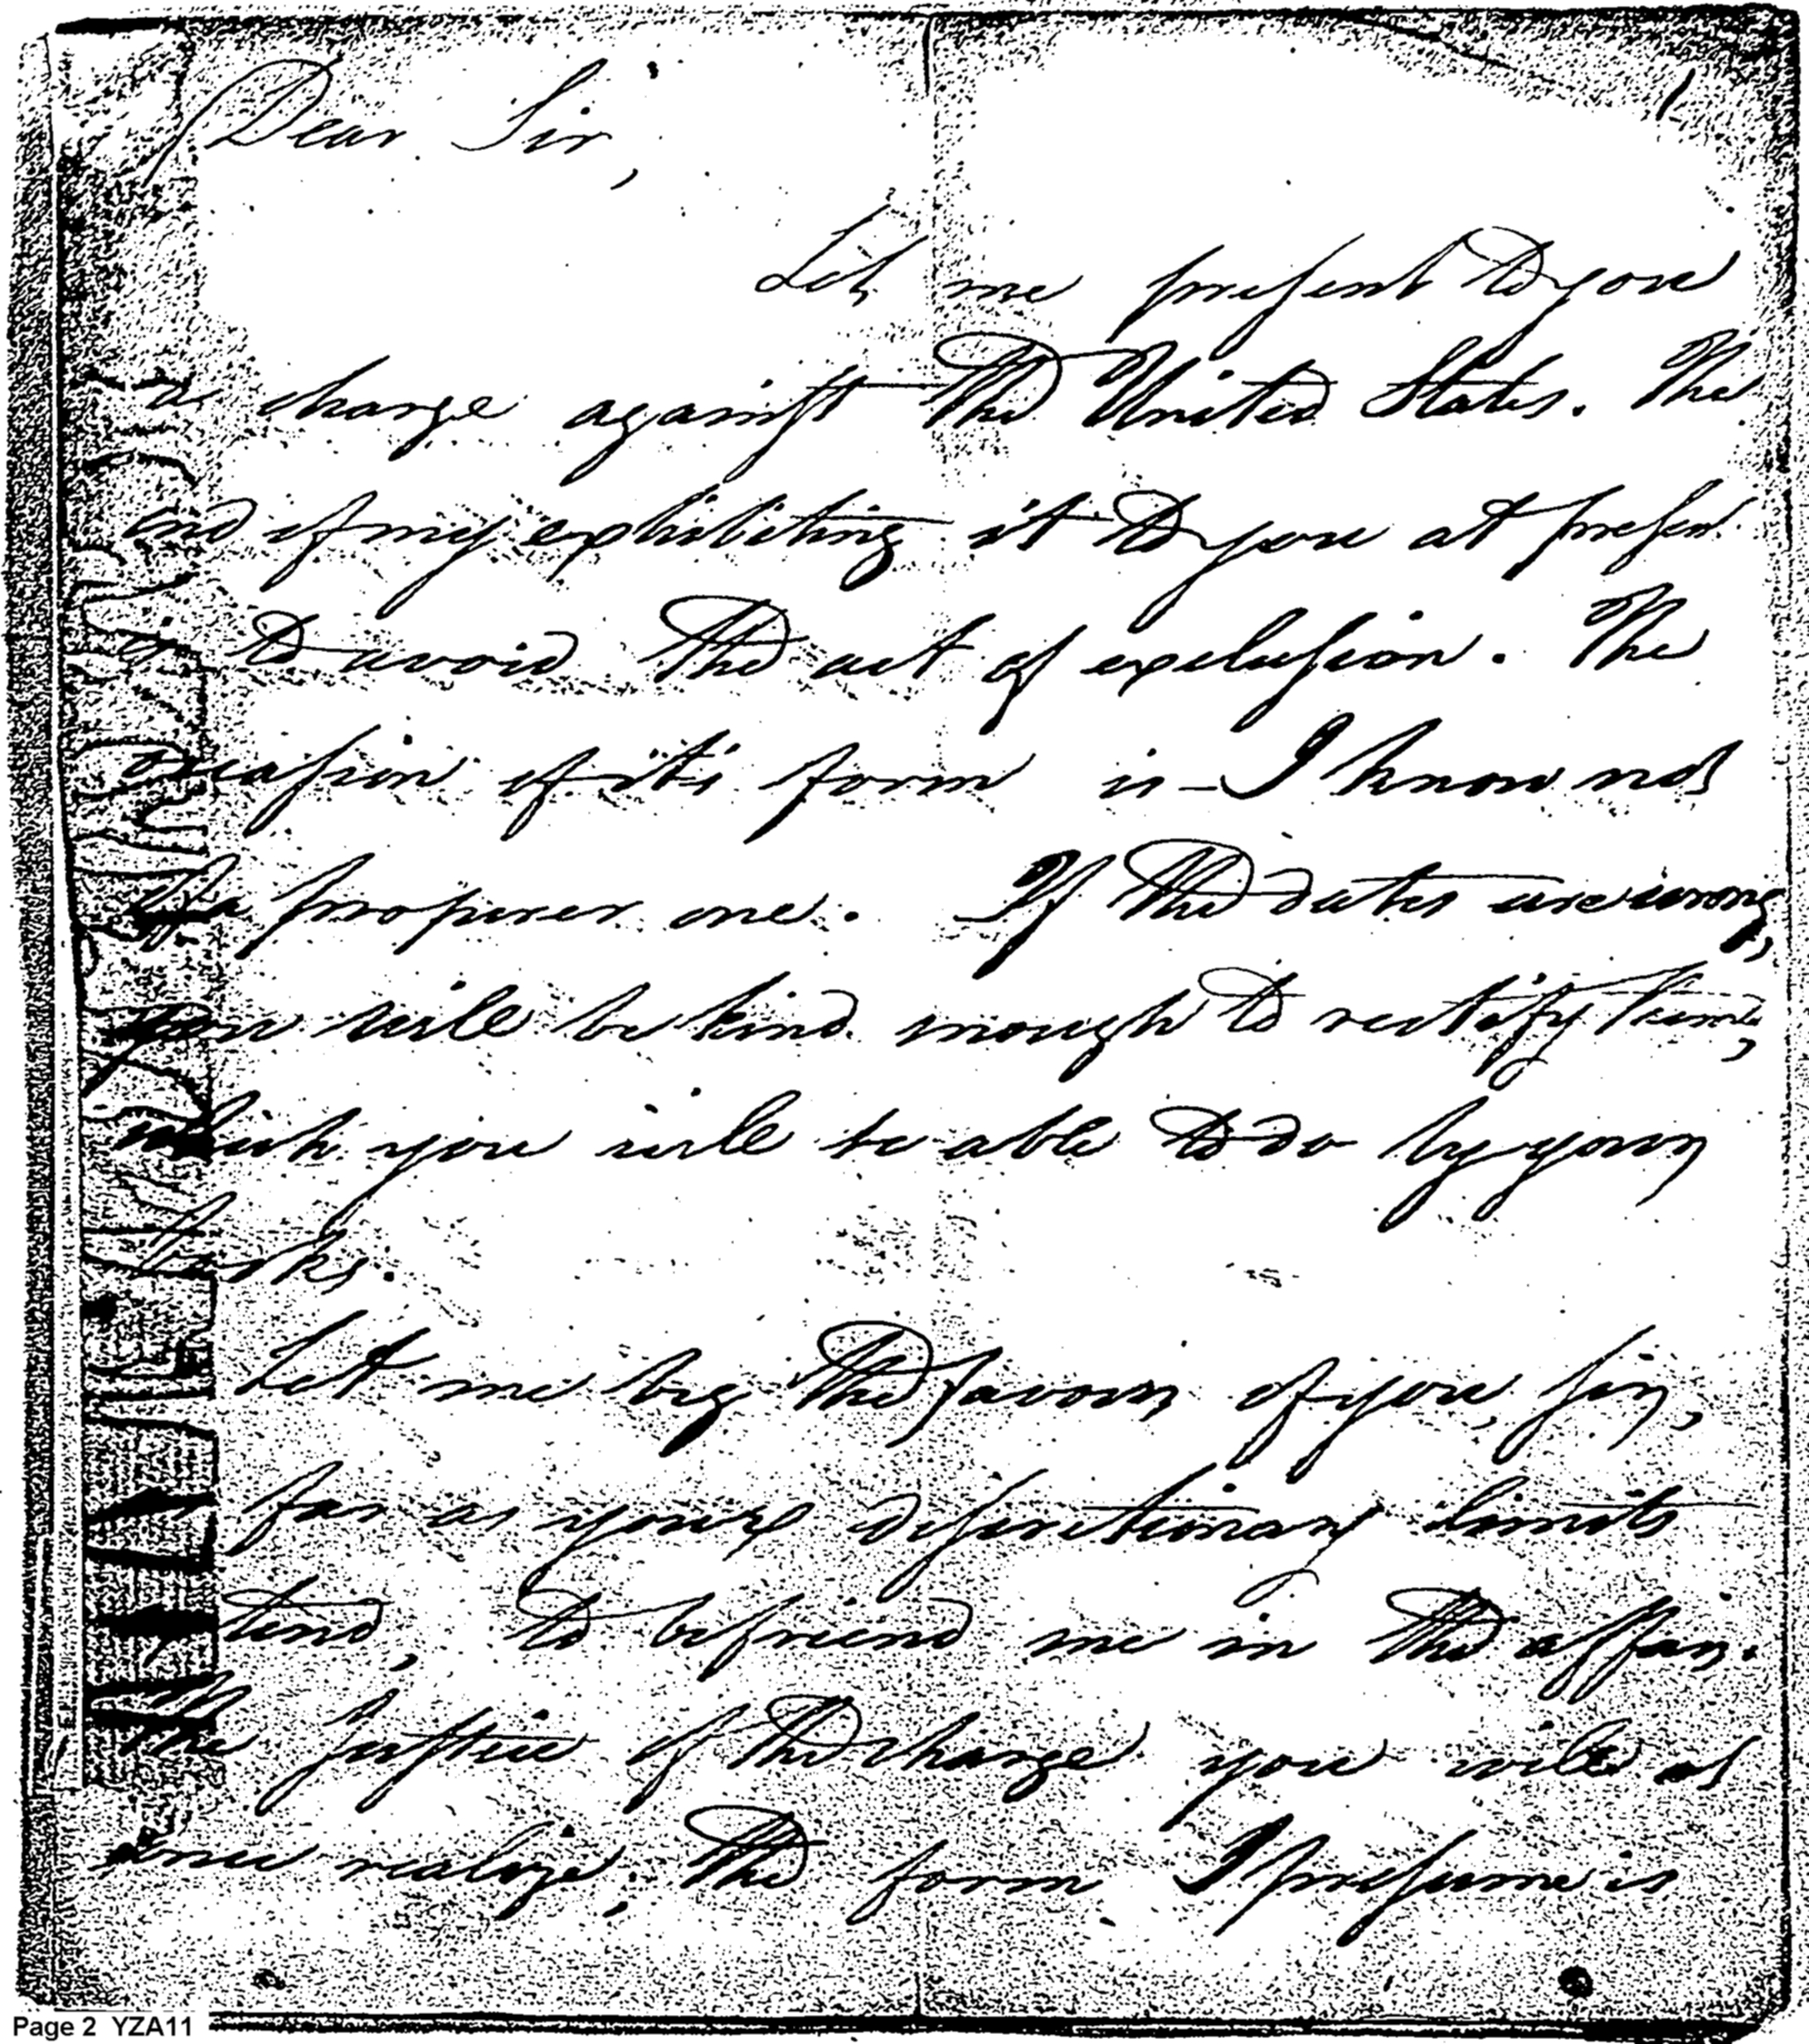 Dear Sir,
Let me present to you
a charge against the United States. The
end of my exhibiting it to you at presen
is to avoid the act of exclusion. The
occasion of it's form is – I know not
of a properer one. If the dates are wrong,
you will be kind enough to rectify them,
which you will be able to do by your
books.
Let me beg the favour of you, sir,
far as your discretionary limits
tend, to befriend me in the affair.
The justice of the charge you will at
once realize; the form I presume is
Page 2 YZA11